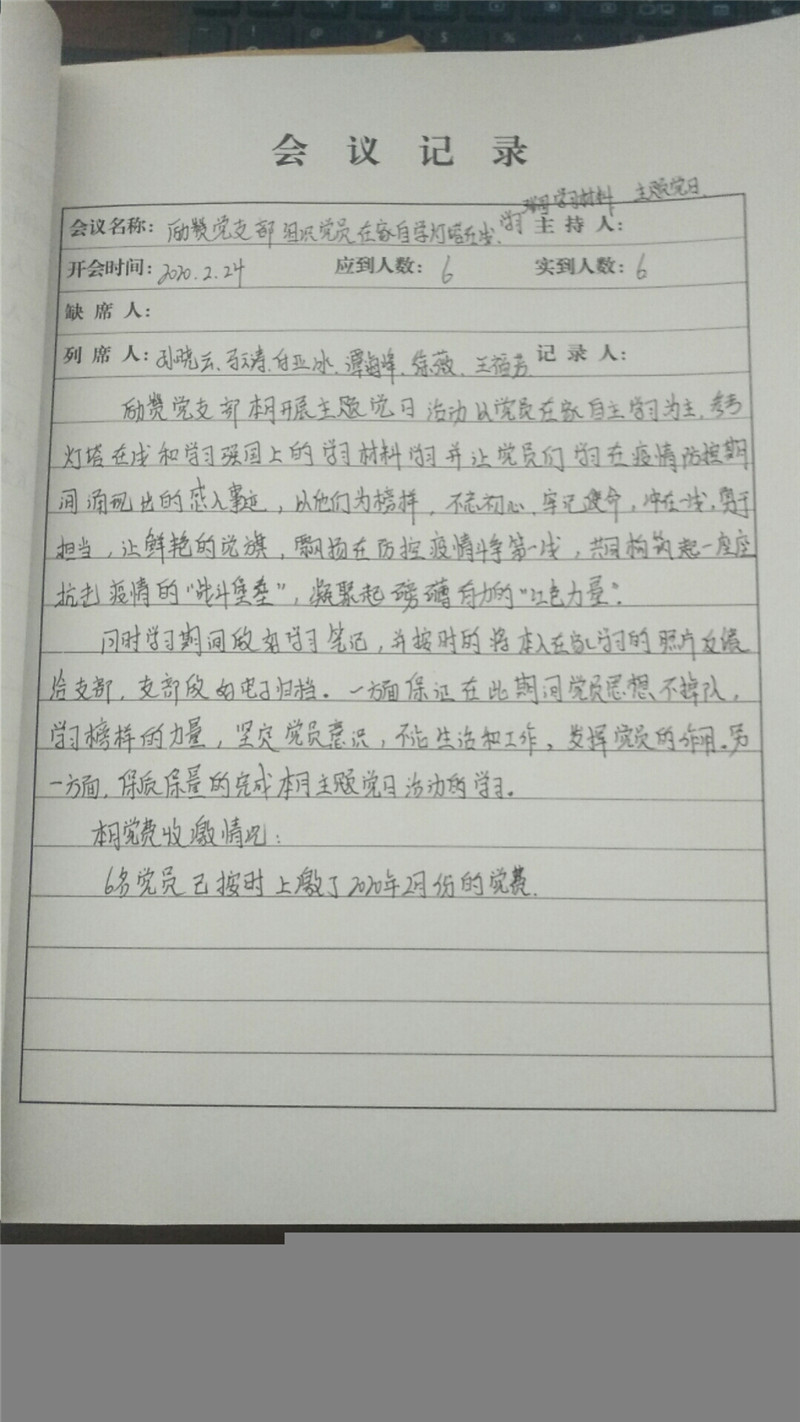 会议记录
学习材料 主题党日
会议名称: 励赞党支部组织党员在家自学灯塔在线、学习 主持人:
开会时间: 2020.2.24 应到人数: 6 实到人数: 6
缺席人:
列席人: 孙晓云、马涛、付亚冰、谭海峰、徐薇、王福芳 记录人:
励赞党支部本月开展主题党日活动以党员在家自主学习为主,参与
灯塔在线和学习强国上的学习材料学习并让党员们学习在疫情防控期
间涌现出的感人事迹,以他们为榜样,不忘初心、牢记使命,冲在一线,勇于
担当,让鲜艳的党旗,飘扬在防控疫情斗争第一线,共同构筑起一座座
抗击疫情的“战斗堡垒”,凝聚起磅礴有力的“红色力量”。
同时学习期间做好学习笔记,并按时的将本人在家学习的照片反馈
给支部,支部做好电子归档。一方面保证在此期间党员思想不掉队,
学习榜样的力量,坚定党员意识,不忘生活和工作、发挥党员的作用。另
一方面,保质保量的完成本月主题党日活动的学习。
本月党费收缴情况:
6名党员已按时上缴了2020年2月份的党费.